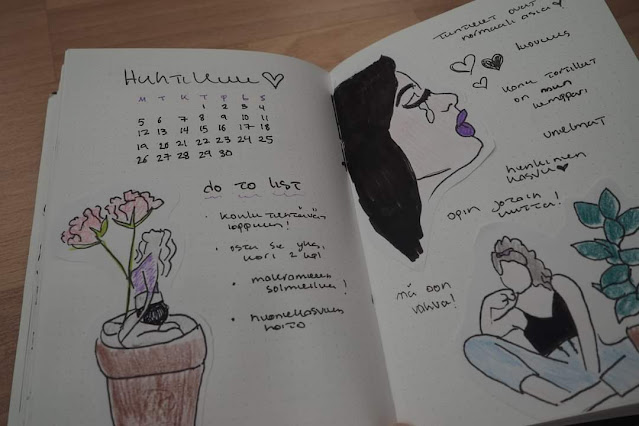 Huhtikuu ♡
M T K T P L S
1 2 3 4
5 6 7 8 9 10 11
12 13 14 15 16 17 18
19 20 21 22 23 24 25
26 27 28 29 30
do to list
• koulutehtävät
loppuun!
• osta se yksi
kori 2 kpl
• makrameen
solmeilua!
• huonekasvien
hoito
Tunteet ovat
normaali asia ♡
kovuus
Koru Torilliset
on mun
kamppari
unelmat
henkinen
kasvu ♥
opin jotain
uutta!
mä oon
vahva!